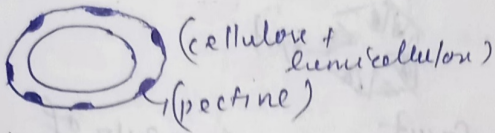 (cellulose +
hemicellulose)
(pectine)